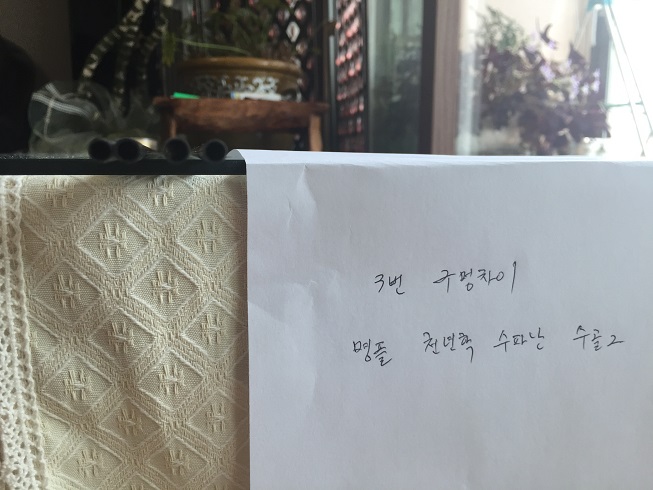 3번 구멍차이
명품 천년학 수파난 수골2